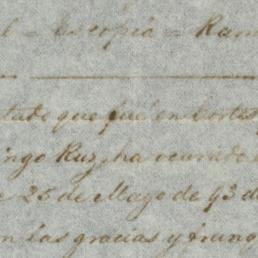 l = Es copia = Ram
tado que fué en Cortes
ingo Ruz, ha ocurrido
e 25 de Mayo de 93 de
on las gracias y franq